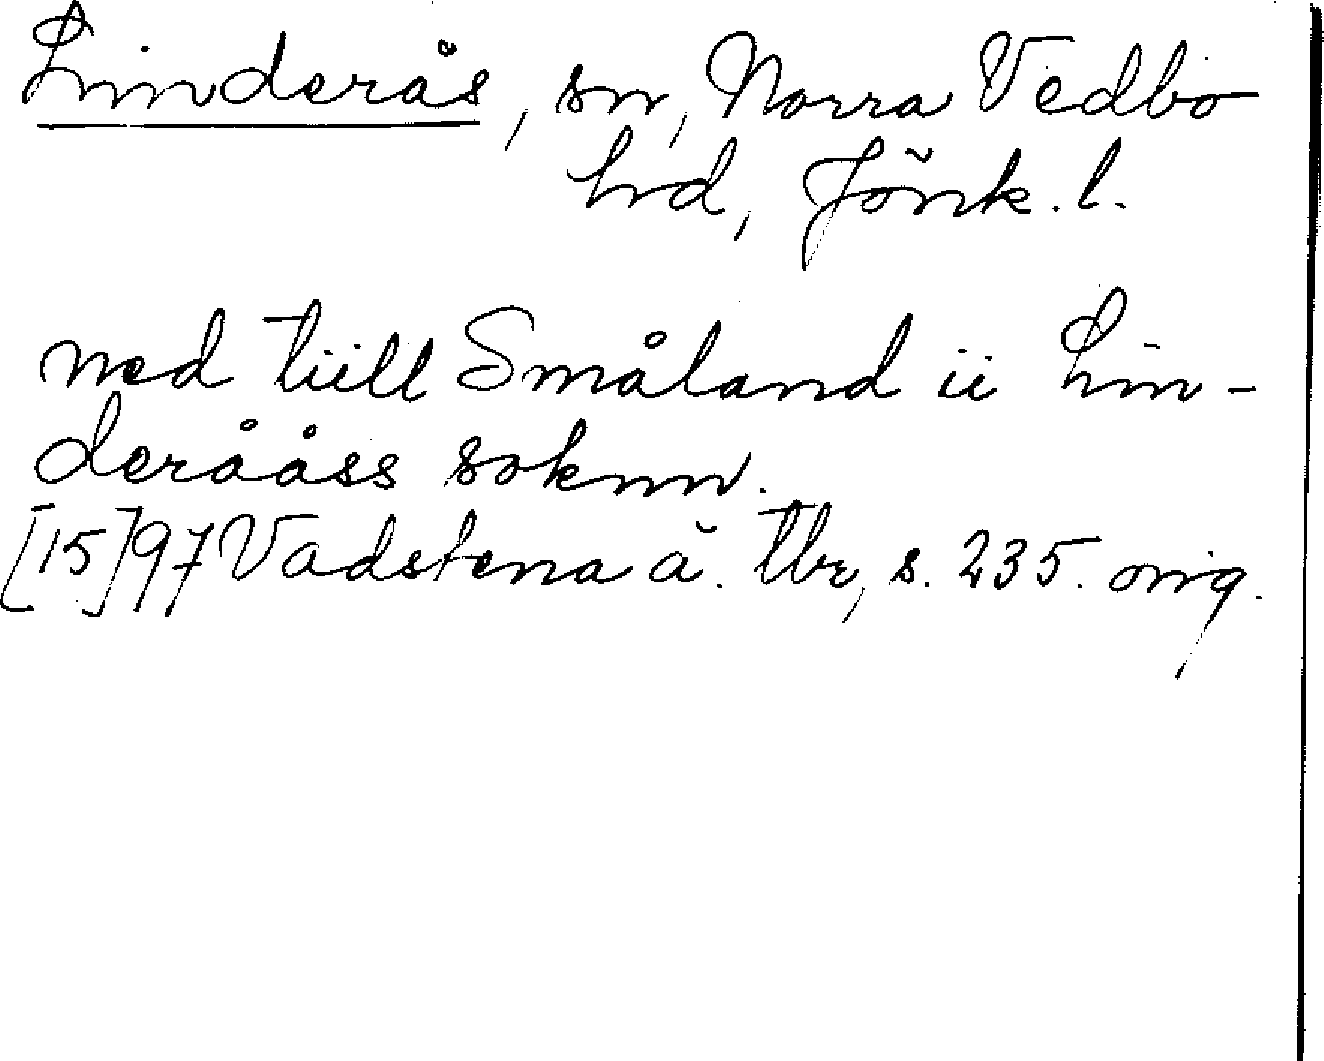 Linderås, sn, Norra Vedbo
hd, Jönk. l.
ned tiill Småland ii Lin-
derååss soknn.
[15]97 Vadstena ä. tbr, s. 235. orig.